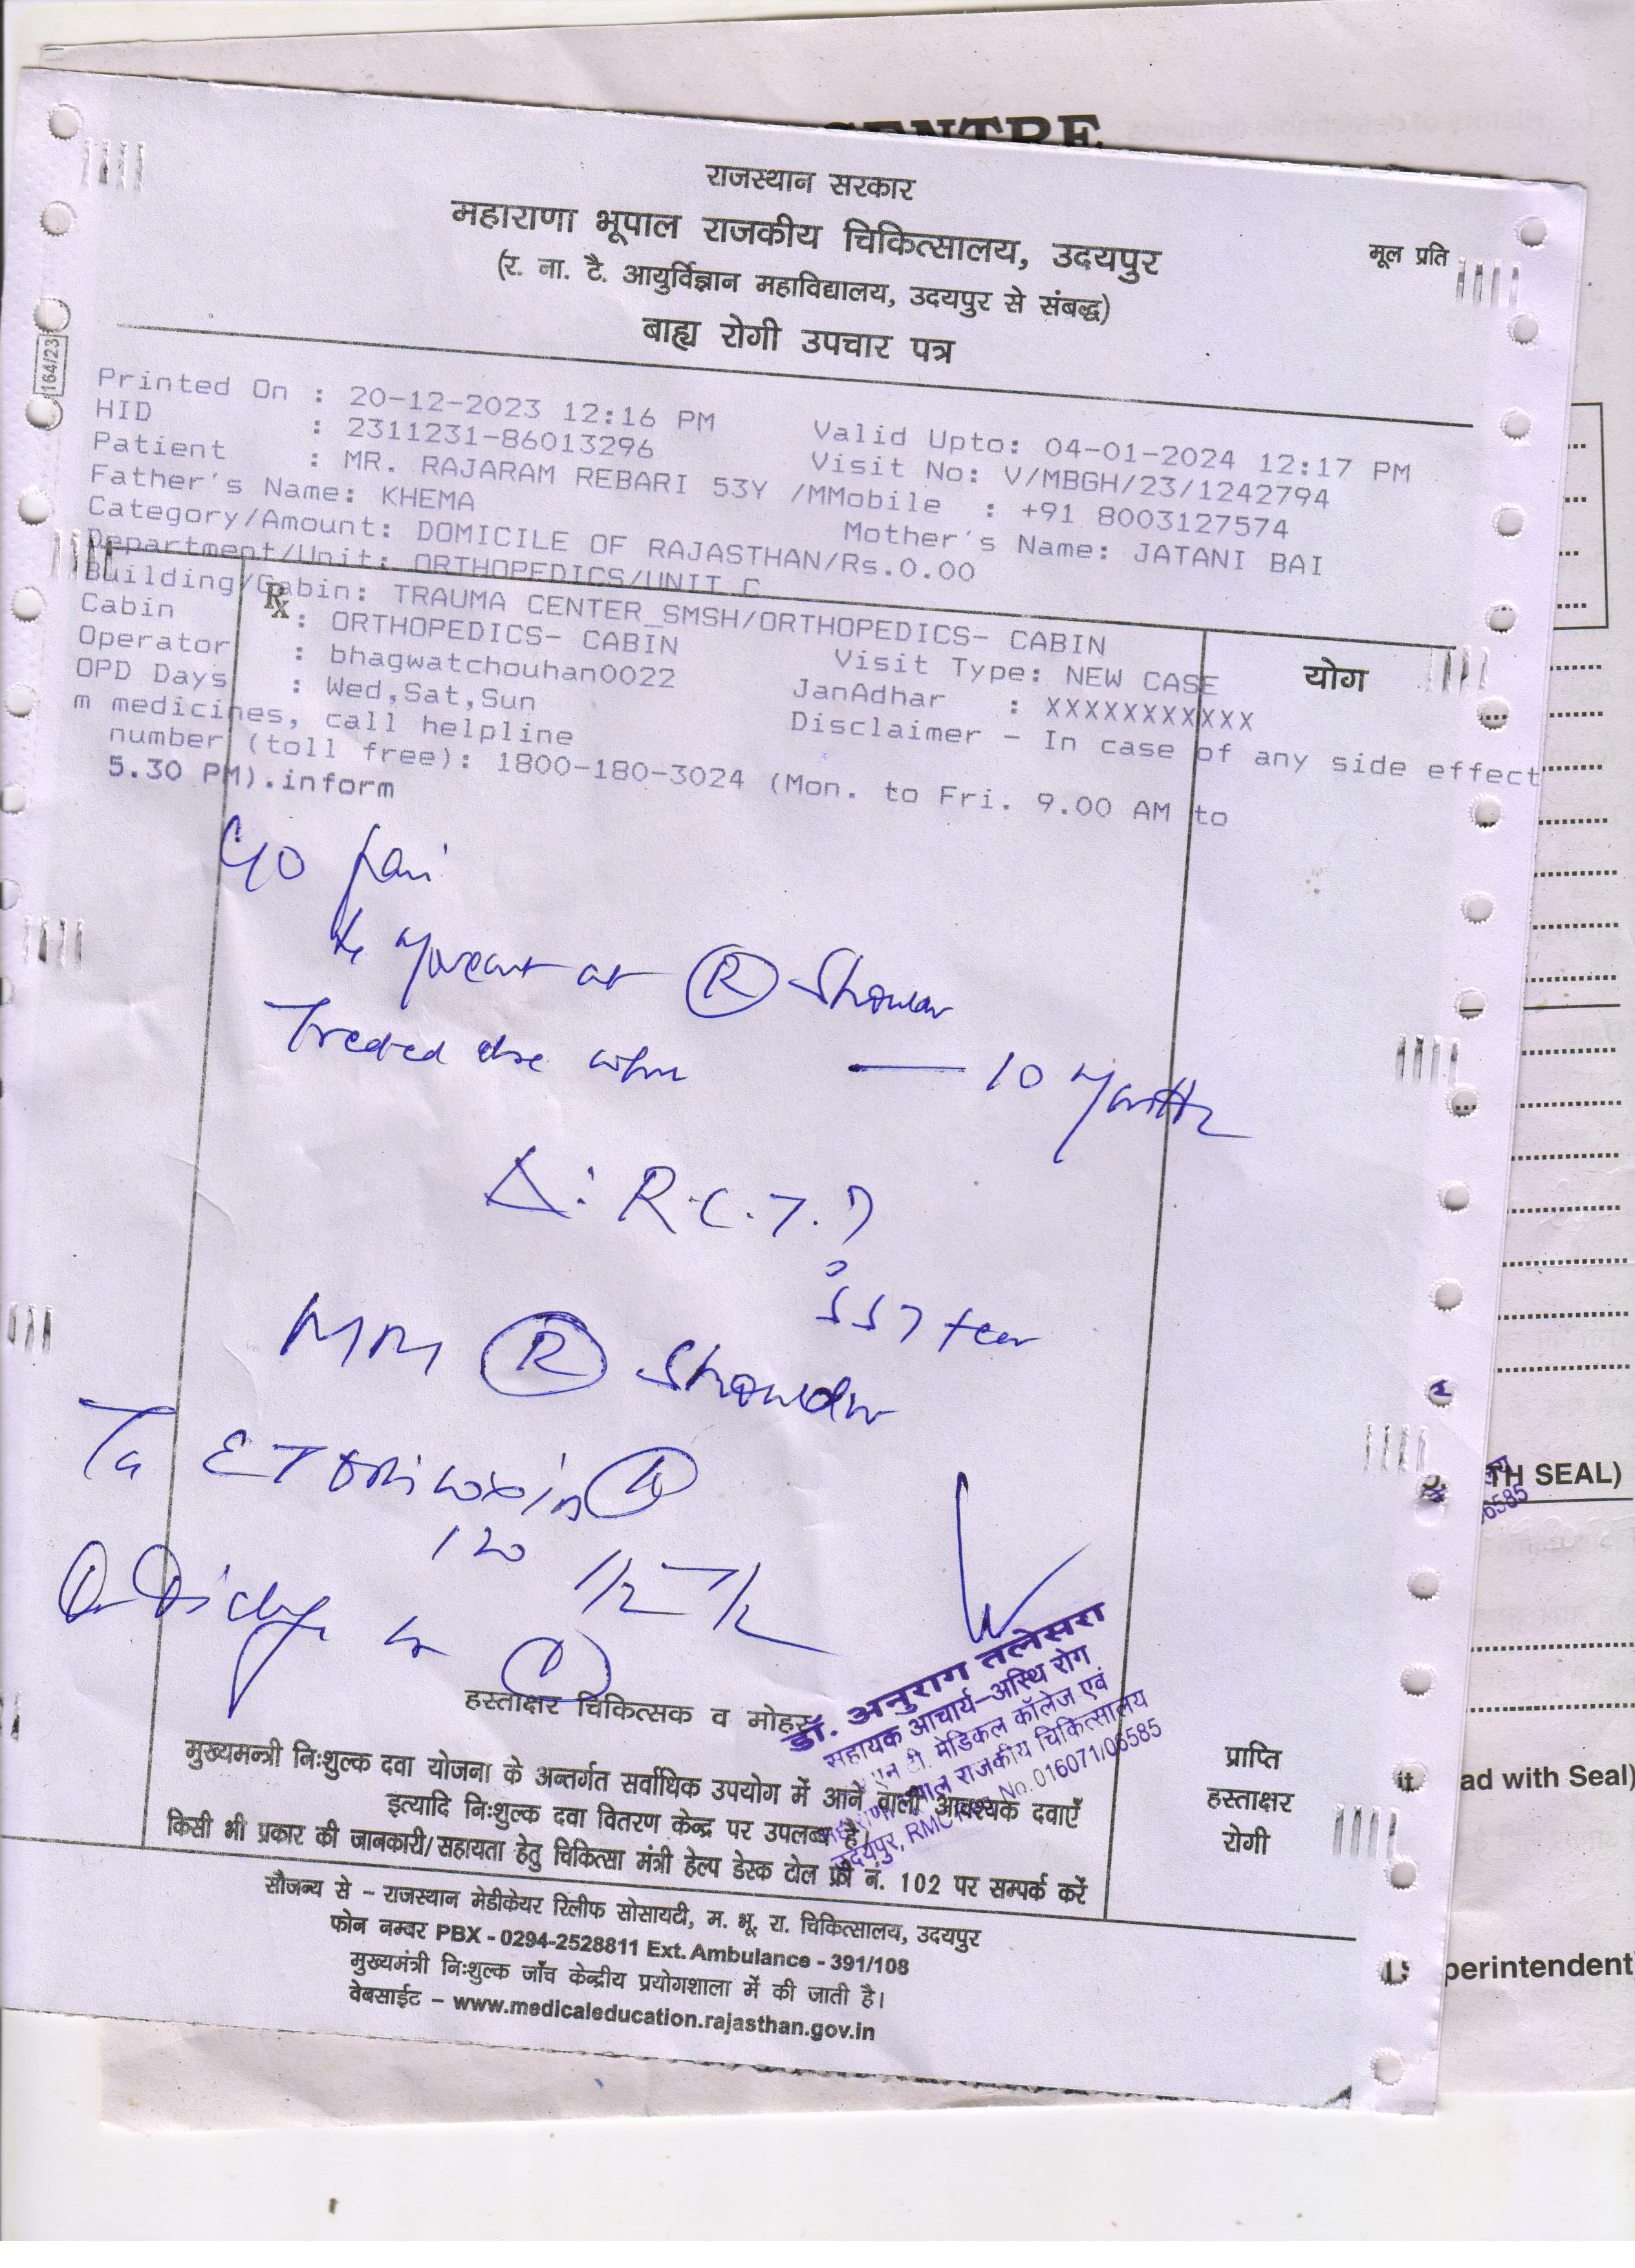 CENTRE
राजस्थान सरकार
महाराणा भूपाल राजकीय चिकित्सालय, उदयपुर
मूल प्रति
(र. ना. टै. आयुर्विज्ञान महाविद्यालय, उदयपुर से संबद्ध)
बाह्य रोगी उपचार पत्र
164/23
Printed On : 20-12-2023 12:16 PM Valid Upto: 04-01-2024 12:17 PM
HID : 2311231-86013296 Visit No: V/MBGH/23/1242794
Patient : MR. RAJARAM REBARI 53Y /MMobile : +91 8003127574
Father's Name: KHEMA Mother's Name: JATANI BAI
Category/Amount: DOMICILE OF RAJASTHAN/Rs.0.00
Department/Unit: ORTHOPEDICS/UNIT C
Building/Cabin: TRAUMA CENTER_SMSH/ORTHOPEDICS- CABIN
Rx
Cabin : ORTHOPEDICS- CABIN Visit Type: NEW CASE
योग
Operator : bhagwatchouhan0022 JanAdhar : XXXXXXXXXXX
OPD Days : Wed,Sat,Sun Disclaimer - In case of any side effect
m medicines, call helpline
number (toll free): 1800-180-3024 (Mon. to Fri. 9.00 AM to
5.30 PM).inform
C/O pain
at R Shoulder
Treated else where — 10 Month
Δ: R.C.T.?
? SST tear
MRI R Shoulder
120
1/2 - 1/2
डॉ. अनुराग तलेसरा
सहायक आचार्य-अस्थि रोग
मेडिकल कॉलेज एवं
राजकीय चिकित्सालय
उदयपुर, RMC No. 016071/06585
हस्ताक्षर चिकित्सक व मोहर
मुख्यमन्त्री निःशुल्क दवा योजना के अन्तर्गत सर्वाधिक उपयोग में आने वाली आवश्यक दवाएँ
इत्यादि निःशुल्क दवा वितरण केन्द्र पर उपलब्ध है।
किसी भी प्रकार की जानकारी/सहायता हेतु चिकित्सा मंत्री हेल्प डेस्क टोल फ्री नं. 102 पर सम्पर्क करें
प्राप्ति
हस्ताक्षर
रोगी
सौजन्य से - राजस्थान मेडीकेयर रिलीफ सोसायटी, म. भू. रा. चिकित्सालय, उदयपुर
फोन नम्बर PBX - 0294-2528811 Ext. Ambulance - 391/108
मुख्यमंत्री निःशुल्क जाँच केन्द्रीय प्रयोगशाला में की जाती है।
वेबसाईट - www.medicaleducation.rajasthan.gov.in
TH SEAL)
ad with Seal)
perintendent